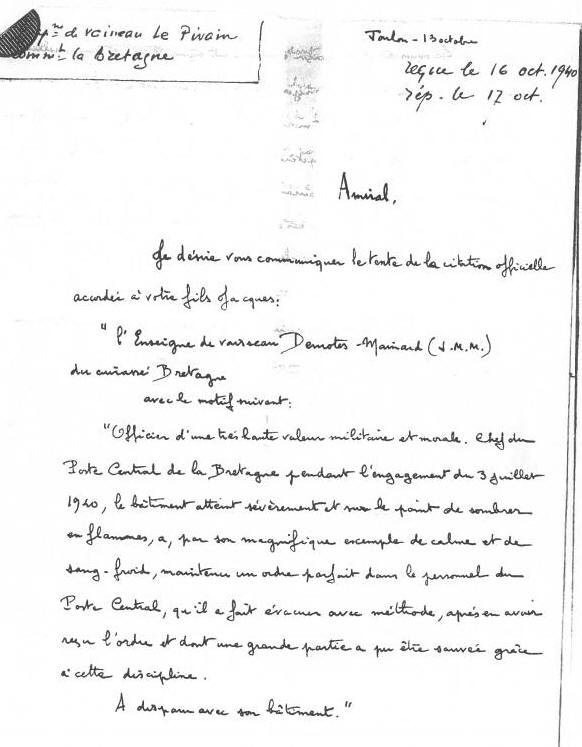 de vaisseau Le Pivain
Comm.t la Bretagne
Toulon - 13 octobre
reçue le 16 oct. 1940
rép. le 17 oct.
Amiral,
Je désire vous communiquer le texte de la citation officielle
accordée à votre fils Jacques:
" l'Enseigne de vaisseau Demotes-Mainard (J.M.M.)
du cuirassé Bretagne
avec le motif suivant:
"Officier d'une très haute valeur militaire et morale. Chef du
Poste Central de la Bretagne pendant l'engagement du 3 juillet
1940, le bâtiment atteint sévèrement et sur le point de sombrer
en flammes, a, par son magnifique exemple de calme et de
sang-froid, maintenu un ordre parfait dans le personnel du
Poste Central, qu'il a fait évacuer avec méthode, après en avoir
reçu l'ordre et dont une grande partie a pu être sauvée grâce
à cette discipline.
A disparu avec son bâtiment."